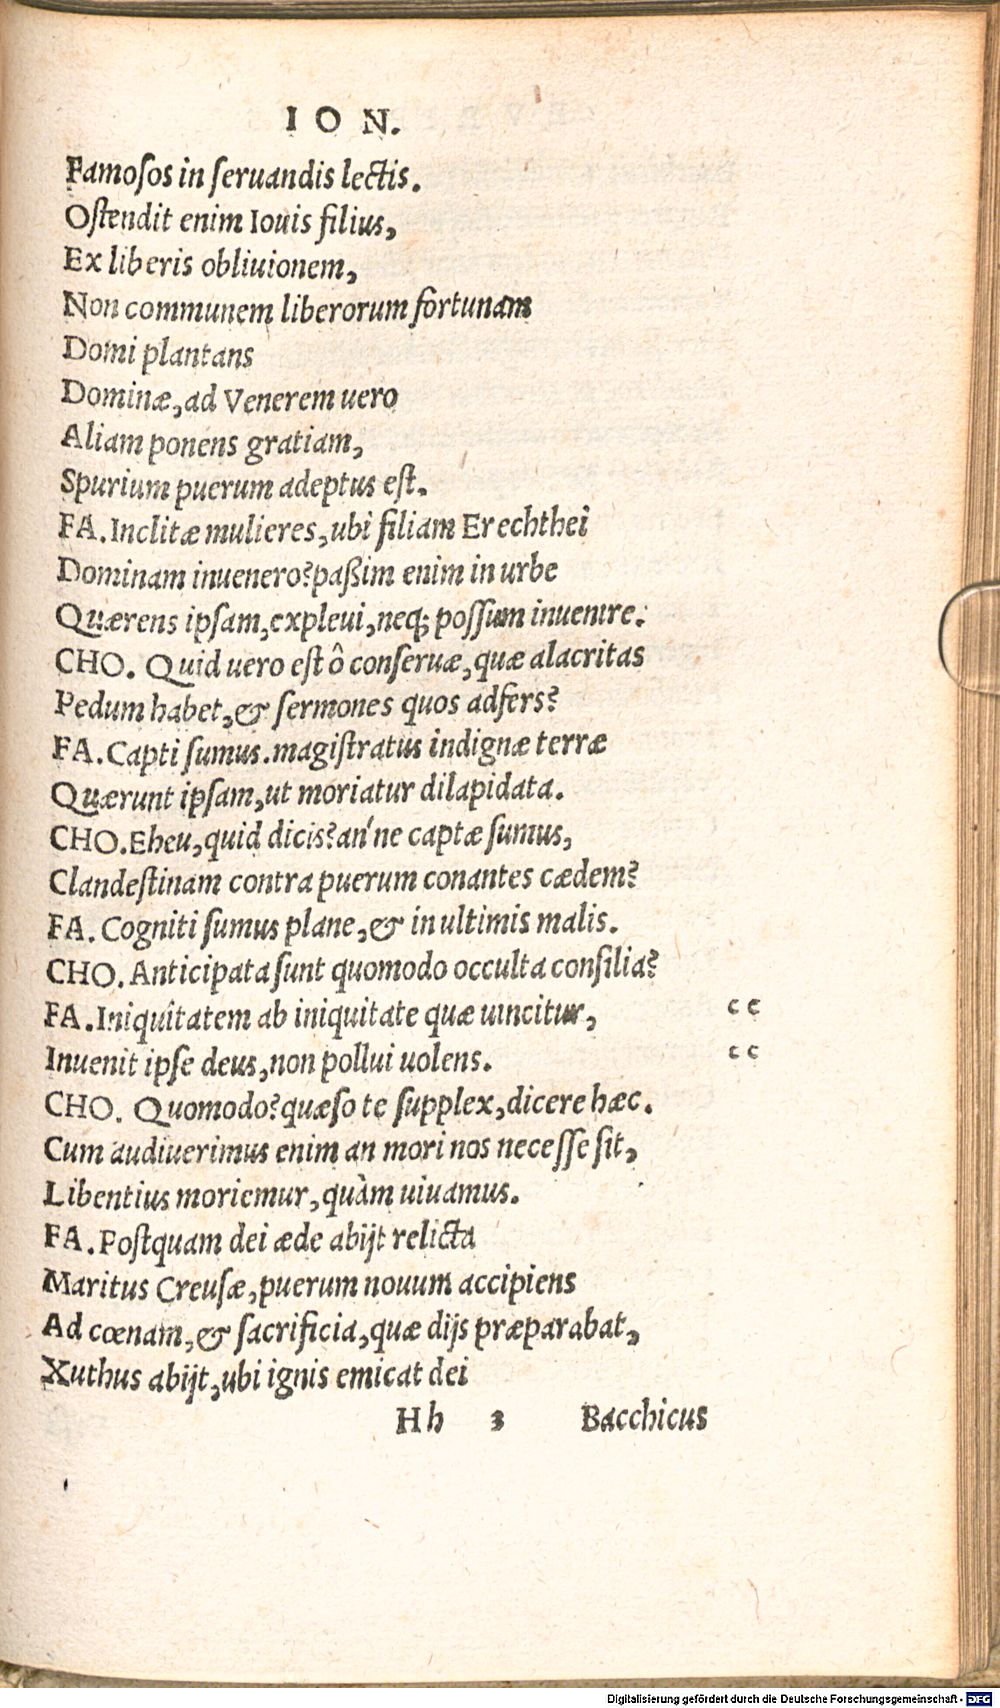 ION.
Famosos in seruandis lectis.
Ostendit enim Iouis filius,
Ex liberis obliuionem,
Non communem liberorum fortunam
Domi plantans
Dominæ, ad Venerem uero
Aliam ponens gratiam,
Spurium puerum adeptus est.
FA. Inclitæ mulieres, ubi filiam Erechthei
Dominam inuenero? paßim enim in urbe
Quærens ipsam, expleui, neq; possum inuenire.
CHO. Quid uero est ô conseruæ, quæ alacritas
Pedum habet, & sermones quos adfers?
FA. Capti sumus. magistratus indignæ terræ
Quærunt ipsam, ut moriatur dilapidata.
CHO. Eheu, quid dicis? an'ne captæ sumus,
Clandestinam contra puerum conantes cædem?
FA. Cogniti sumus plane, & in ultimis malis.
CHO. Anticipata sunt quomodo occulta consilia?
FA. Iniquitatem ab iniquitate quæ uincitur, cc
Inuenit ipse deus, non pollui uolens. cc
CHO. Quomodo? quæso te supplex, dicere hæc.
Cum audiuerimus enim an mori nos necesse sit,
Libentius moriemur, quàm uiuamus.
FA. Postquam dei æde abijt relicta
Maritus Creusæ, puerum nouum accipiens
Ad cœnam, & sacrificia, quæ dijs præparabat,
Xuthus abijt, ubi ignis emicat dei
Hh 3 Bacchicus
Digitalisierung gefördert durch die Deutsche Forschungsgemeinschaft - DFG